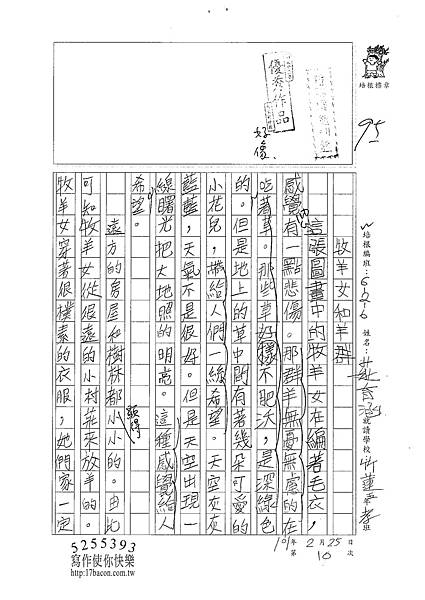 培根標章
優秀作品
95
好像
W
培根編班：
姓名：
就讀學校
牧羊女和羊群
這張圖畫中的牧羊女在編著毛衣，
感覺有一點悲傷。那群羊無憂無慮的在
吃著草。那些草好像不肥沃，是深綠色
的。但是地上的草中間有著幾朵可愛的
小花兒，帶給人們一絲希望。天空灰灰
藍藍，天氣不是很好。但是天空出現一
線曙光把大地照的明亮。這種感覺給人
希望。
遠方的房屋和樹林都小小的。由此
顯得
可知牧羊女從很遠的小村莊來放羊的。
牧羊女穿著很樸素的衣服，她們家一定
101年2月25日
第10次
5255393
寫作使你快樂
http://17bacon.com.tw